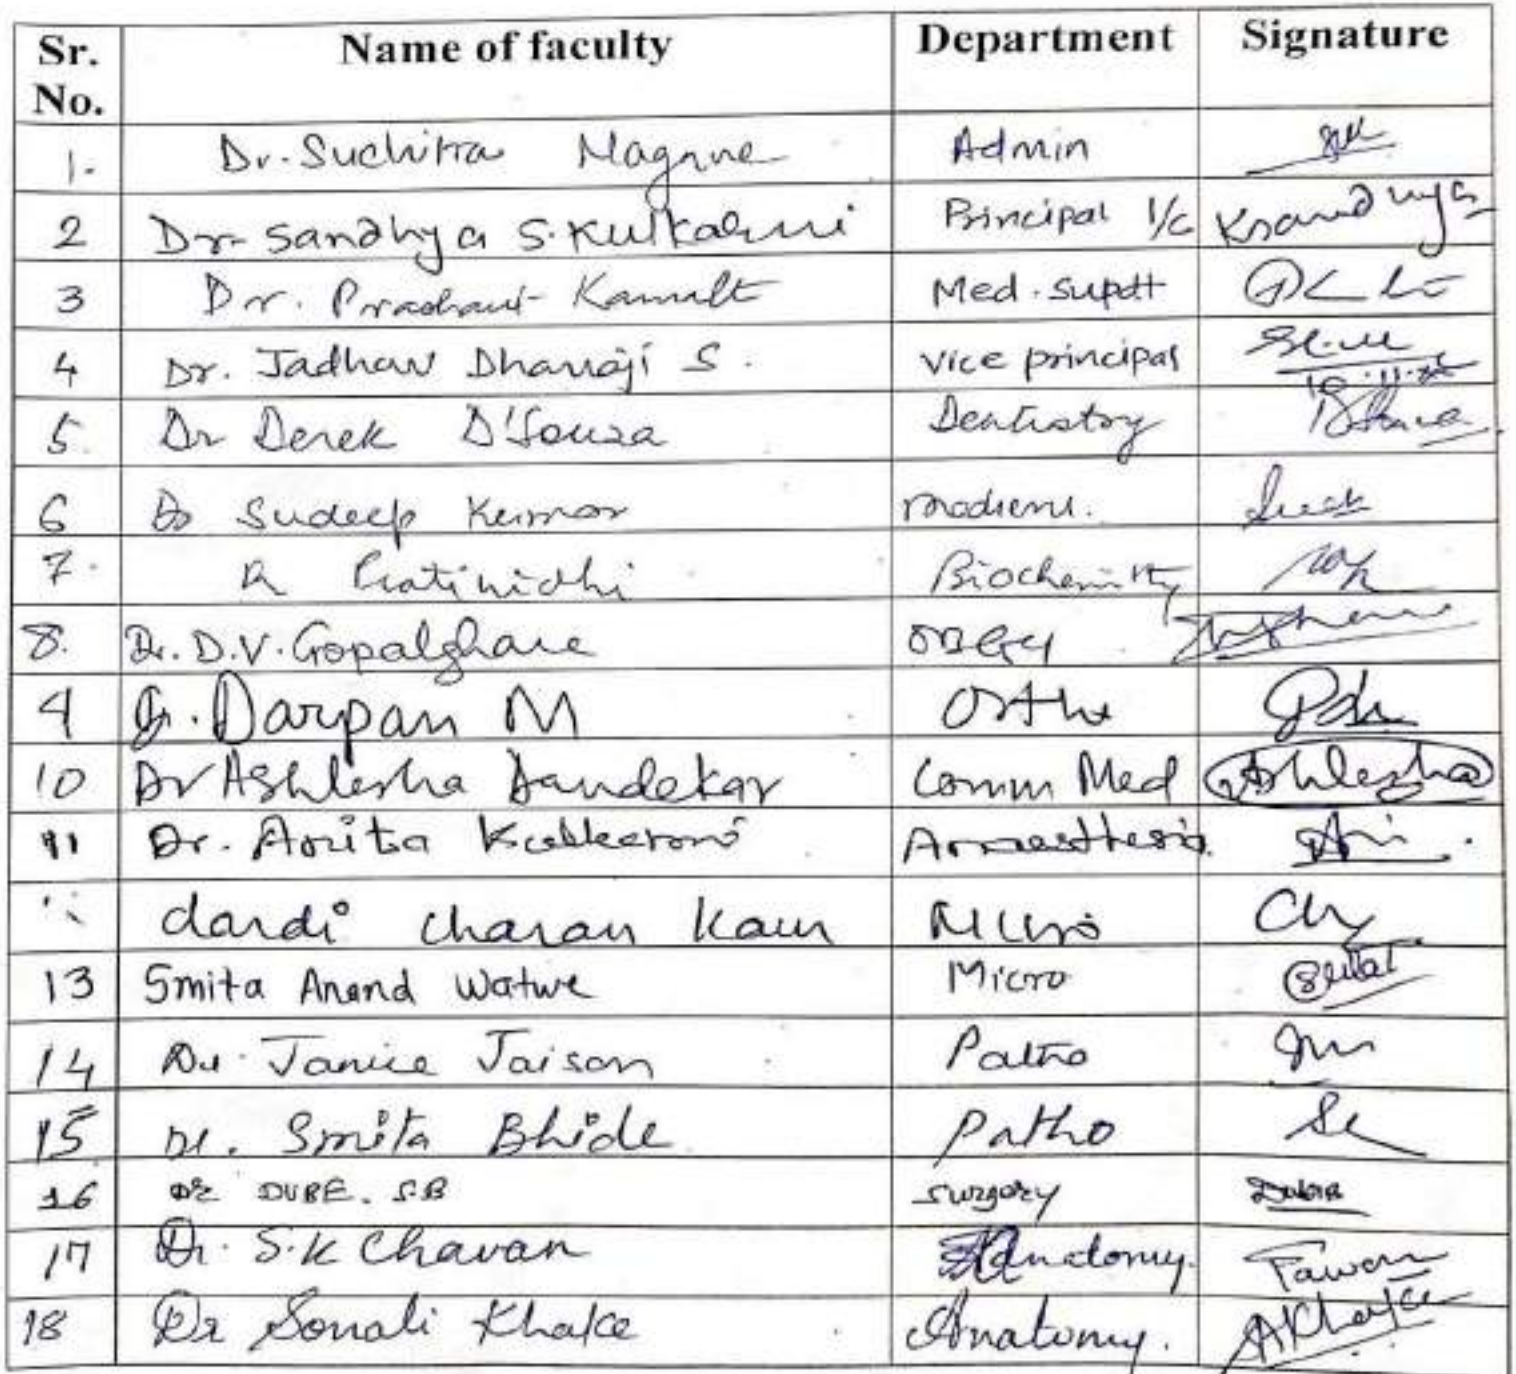 Sr. No. Name of faculty Department Signature
1. Dr. Suchitra Nagare Admin
2 Dr. Sandhya S. Kulkarni Principal I/c Ksandhya
3 Dr. Prashant Med. supdt
4 Dr. Jadhav Dhanaji S. Vice principal
5. Dr Derek D'Souza Dentistry
6 Dr Sudeep Kumar
7. Dr Pratinidhi Biochemistry
8. Dr. D.V. Gopalghare OBGY
9 Dr. Darpan M Ortho
10 Dr Ashlesha Dandekar Comm Med Ashlesha
11 Dr. Anita Kulkarni Anaesthesia
dardi charan kaur Micro
13 Smita Anand Watwe Micro
14 Dr. Janice Jaison Patho
15 Dr. Smita Bhide Patho
16 Dr DUBE. S.B surgery
17 Dr. S.K Chavan Anatomy.
18 Dr Sonali Khake Anatomy. AKhake